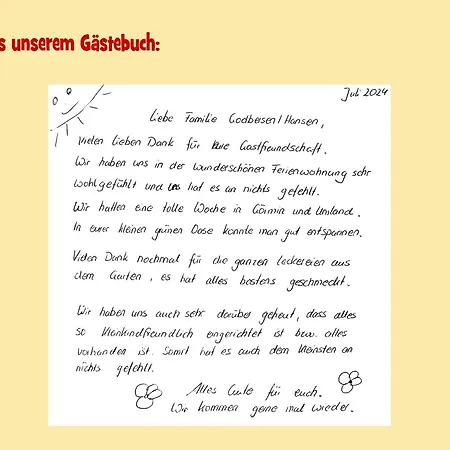 s unserem Gästebuch:
Juli 2024
Liebe Familie Godbersen/Hansen,
vielen lieben Dank für eure Gastfreundschaft.
Wir haben uns in der wunderschönen Ferienwohnung sehr
wohlgefühlt und uns hat es an nichts gefehlt.
Wir hatten eine tolle Woche in Görmin und Umland.
In eurer kleinen grünen Oase konnte man gut entspannen.
Vielen Dank nochmal für die ganzen Leckereien aus
dem Garten, es hat alles bestens geschmeckt.
Wir haben uns auch sehr darüber gefreut, dass alles
so kleinkindfreundlich eingerichtet ist bzw. alles
vorhanden ist. Somit hat es auch dem Kleinsten an
nichts gefehlt.
Alles Gute für euch.
Wir kommen gerne mal wieder.